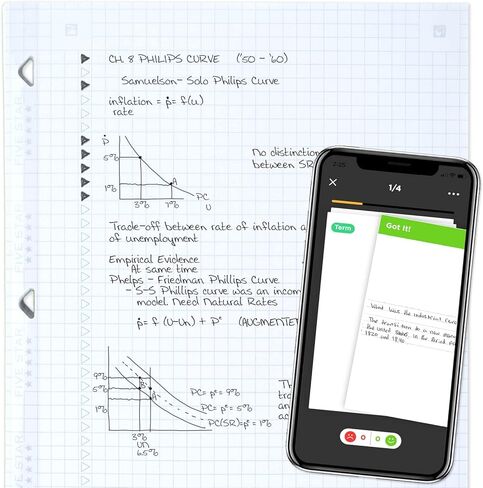 CH. 8 PHILIPS CURVE ('50 - '60)
Samuelson- Solo Philips Curve
inflation = ṗ= f(u)
rate
ṗ
5%
1%
A
3% 7%
PC
U
No distinction
between SR
Trade-off between rate of inflation a
of unemployment
Empirical Evidence
At same time
Phelps - Friedman Phillips Curve
- S-S Phillips curve was an incom
model. Need Natural Rates
ṗ= f (U-Un) + Pᵉ (AUGMENTE
9%
5%
1%
A
PC= pᵉ= 9%
PC= pᵉ= 5%
PC(SR)=pᵉ= 1%
3%
Un
6.5%
Th
tra
an
ac
FIVE STAR
FIVE STAR
7:25
1/4
Term
Got It!
What was the Industrial
The transition to a new
the United States, in the period
1820 and 1840.
0 0